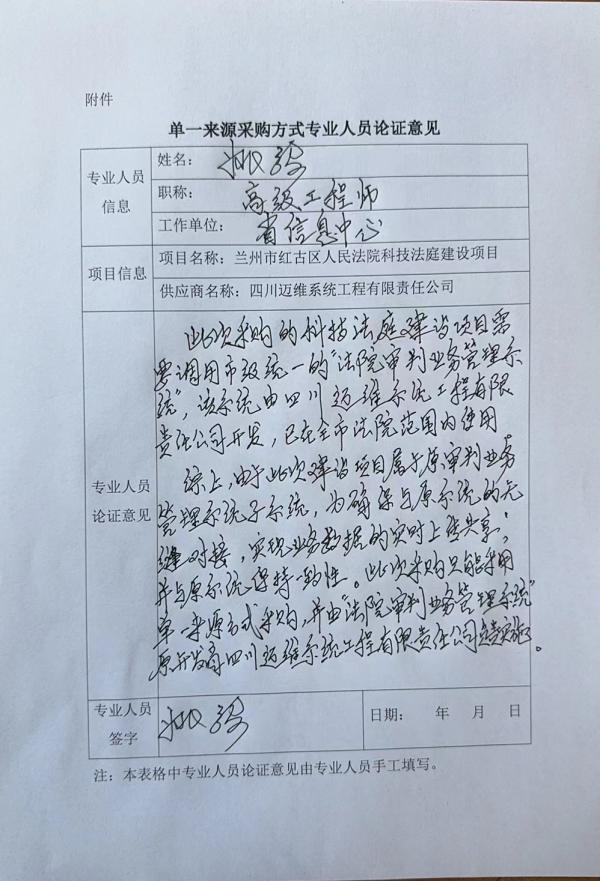 附件
单一来源采购方式专业人员论证意见
专业人员
信息
姓名：
职称： 高级工程师
工作单位： 省信息中心
项目信息
项目名称：兰州市红古区人民法院科技法庭建设项目
供应商名称：四川迈维系统工程有限责任公司
专业人员
论证意见
此次采购的科技法庭建设项目需
要调用市级统一的“法院审判业务管理系
统”，该系统由四川迈维系统工程有限
责任公司开发，已在全市法院范围内使用
综上，由于此次建设项目属于原审判业务
管理系统子系统，为确保与原系统的无
缝对接，实现业务数据的实时上传共享，
并与原系统保持一致性。此次采购只能采用
单一来源方式采购，并由“法院审判业务管理系统”
原开发商四川迈维系统工程有限责任公司实施。
专业人员
签字
日期： 年 月 日
注：本表格中专业人员论证意见由专业人员手工填写。